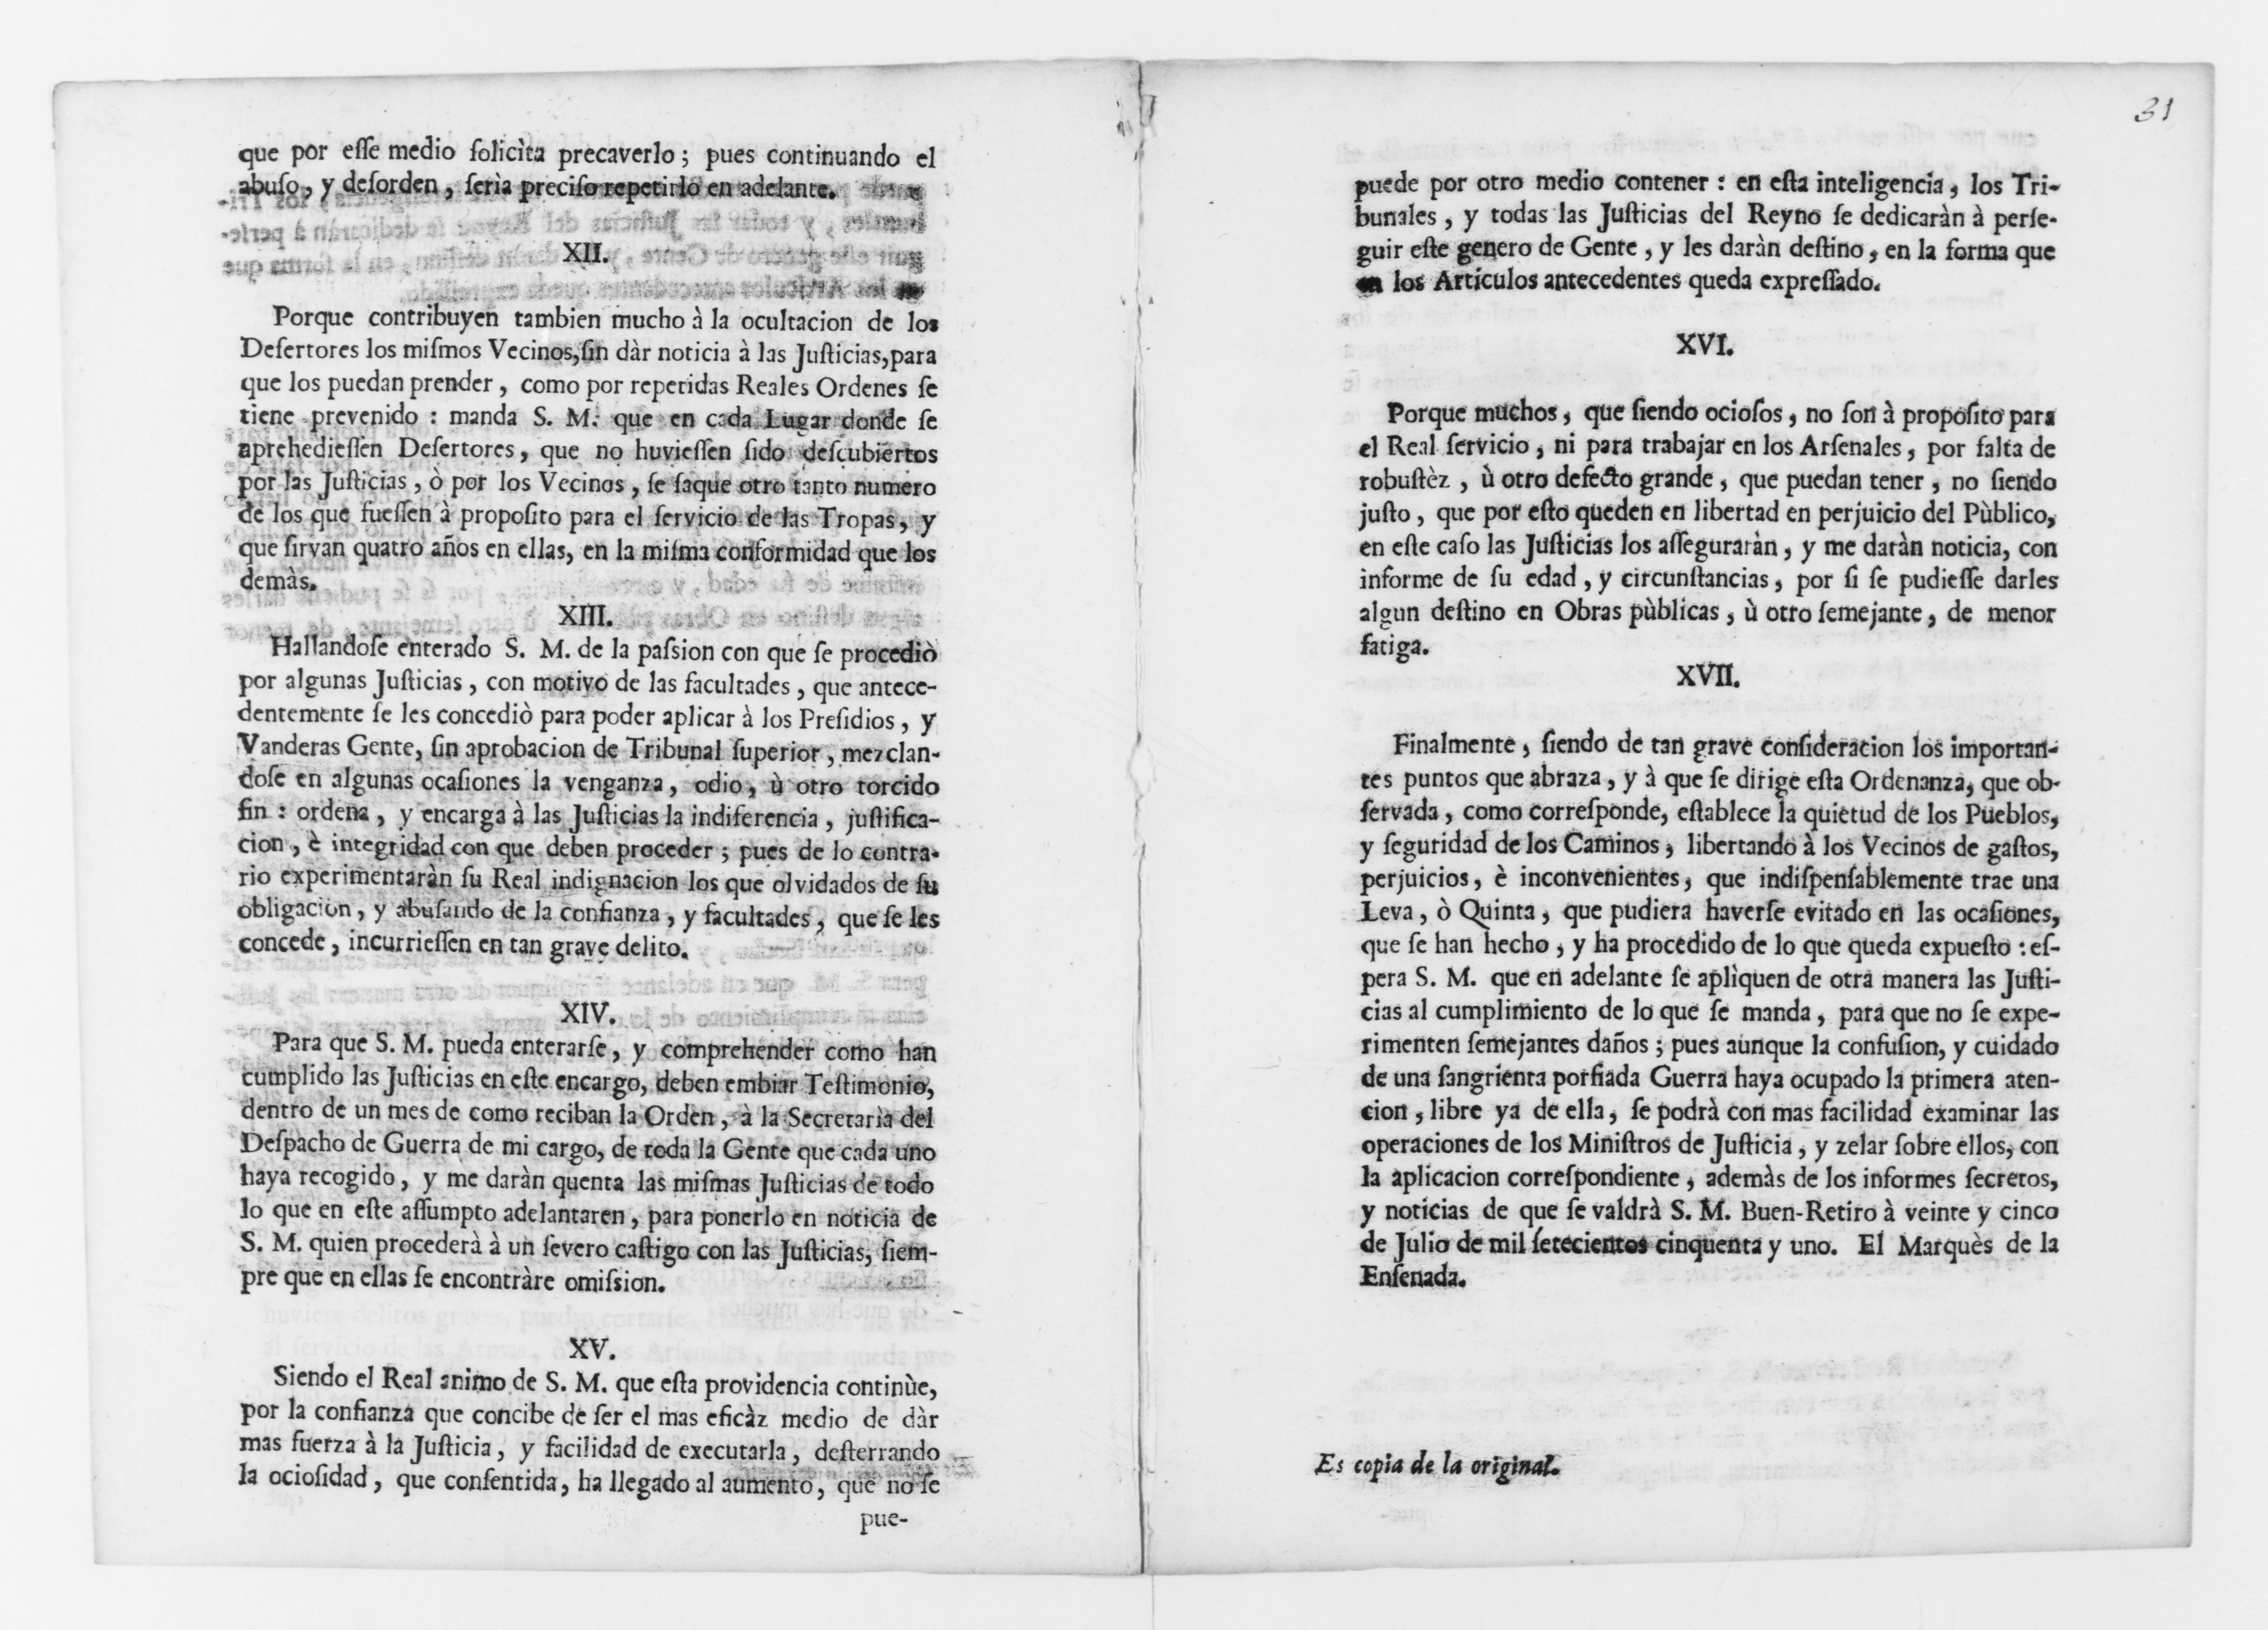 que por eſſe medio ſolicìta precaverlo; pues continuando el
abuſo, y deſorden, ſerìa preciſo repetirlo en adelante.
XII.
Porque contribuyen tambien mucho à la ocultacion de los
Deſertores los miſmos Vecinos, ſin dàr noticia à las Juſticias, para
que los puedan prender, como por repetidas Reales Ordenes ſe
tiene prevenido: manda S. M. que en cada Lugar donde ſe
aprehedieſſen Deſertores, que no huvieſſen ſido deſcubiertos
por las Juſticias, ò por los Vecinos, ſe ſaque otro tanto numero
de los que fueſſen à propoſito para el ſervicio de las Tropas, y
que ſirvan quatro años en ellas, en la miſma conformidad que los
demàs.
XIII.
Hallandoſe enterado S. M. de la paſsion con que ſe procediò
por algunas Juſticias, con motivo de las facultades, que antece-
dentemente ſe les concediò para poder aplicar à los Preſidios, y
Vanderas Gente, ſin aprobacion de Tribunal ſuperior, mezclan-
doſe en algunas ocaſiones la venganza, odio, ù otro torcido
fin: ordena, y encarga à las Juſticias la indiferencia, juſtifica-
cion, è integridad con que deben proceder; pues de lo contra-
rio experimentaràn ſu Real indignacion los que olvidados de ſu
obligacion, y abuſando de la confianza, y facultades, que ſe les
concede, incurrieſſen en tan grave delito.
XIV.
Para que S. M. pueda enterarſe, y comprehender como han
cumplido las Juſticias en eſte encargo, deben embiar Teſtimonio,
dentro de un mes de como reciban la Orden, à la Secretarìa del
Deſpacho de Guerra de mi cargo, de toda la Gente que cada uno
haya recogido, y me daràn quenta las miſmas Juſticias de todo
lo que en eſte aſſumpto adelantaren, para ponerlo en noticia de
S. M. quien procederà à un ſevero caſtigo con las Juſticias, ſiem-
pre que en ellas ſe encontràre omiſsion.
XV.
Siendo el Real animo de S. M. que eſta providencia continùe,
por la confianza que concibe de ſer el mas eficàz medio de dàr
mas fuerza à la Juſticia, y facilidad de executarla, deſterrando
la ocioſidad, que conſentida, ha llegado al aumento, que no ſe
pue-
31
puede por otro medio contener: en eſta inteligencia, los Tri-
bunales, y todas las Juſticias del Reyno ſe dedicaràn à perſe-
guir eſte genero de Gente, y les daràn deſtino, en la forma que
en los Articulos antecedentes queda expreſſado.
XVI.
Porque muchos, que ſiendo ocioſos, no ſon à propoſito para
el Real ſervicio, ni para trabajar en los Arſenales, por falta de
robuſtèz, ù otro defecto grande, que puedan tener, no ſiendo
juſto, que por eſto queden en libertad en perjuicio del Pùblico,
en eſte caſo las Juſticias los aſſeguraràn, y me daràn noticia, con
informe de ſu edad, y circunſtancias, por ſi ſe pudieſſe darles
algun deſtino en Obras pùblicas, ù otro ſemejante, de menor
fatiga.
XVII.
Finalmente, ſiendo de tan grave conſideracion los importan-
tes puntos que abraza, y à que ſe dirige eſta Ordenanza, que ob-
ſervada, como correſponde, eſtablece la quietud de los Pueblos,
y ſeguridad de los Caminos, libertando à los Vecinos de gaſtos,
perjuicios, è inconvenientes, que indiſpenſablemente trae una
Leva, ò Quinta, que pudiera haverſe evitado en las ocaſiones,
que ſe han hecho, y ha procedido de lo que queda expueſto: eſ-
pera S. M. que en adelante ſe aplìquen de otra manera las Juſti-
cias al cumplimiento de lo que ſe manda, para que no ſe expe-
rimenten ſemejantes daños; pues aunque la confuſion, y cuidado
de una ſangrienta porfiada Guerra haya ocupado la primera aten-
cion, libre ya de ella, ſe podrà con mas facilidad examinar las
operaciones de los Miniſtros de Juſticia, y zelar ſobre ellos, con
la aplicacion correſpondiente, ademàs de los informes ſecretos,
y noticias de que ſe valdrà S. M. Buen-Retiro à veinte y cinco
de Julio de mil ſetecientos cinquenta y uno. El Marquès de la
Enſenada.
Es copia de la original.